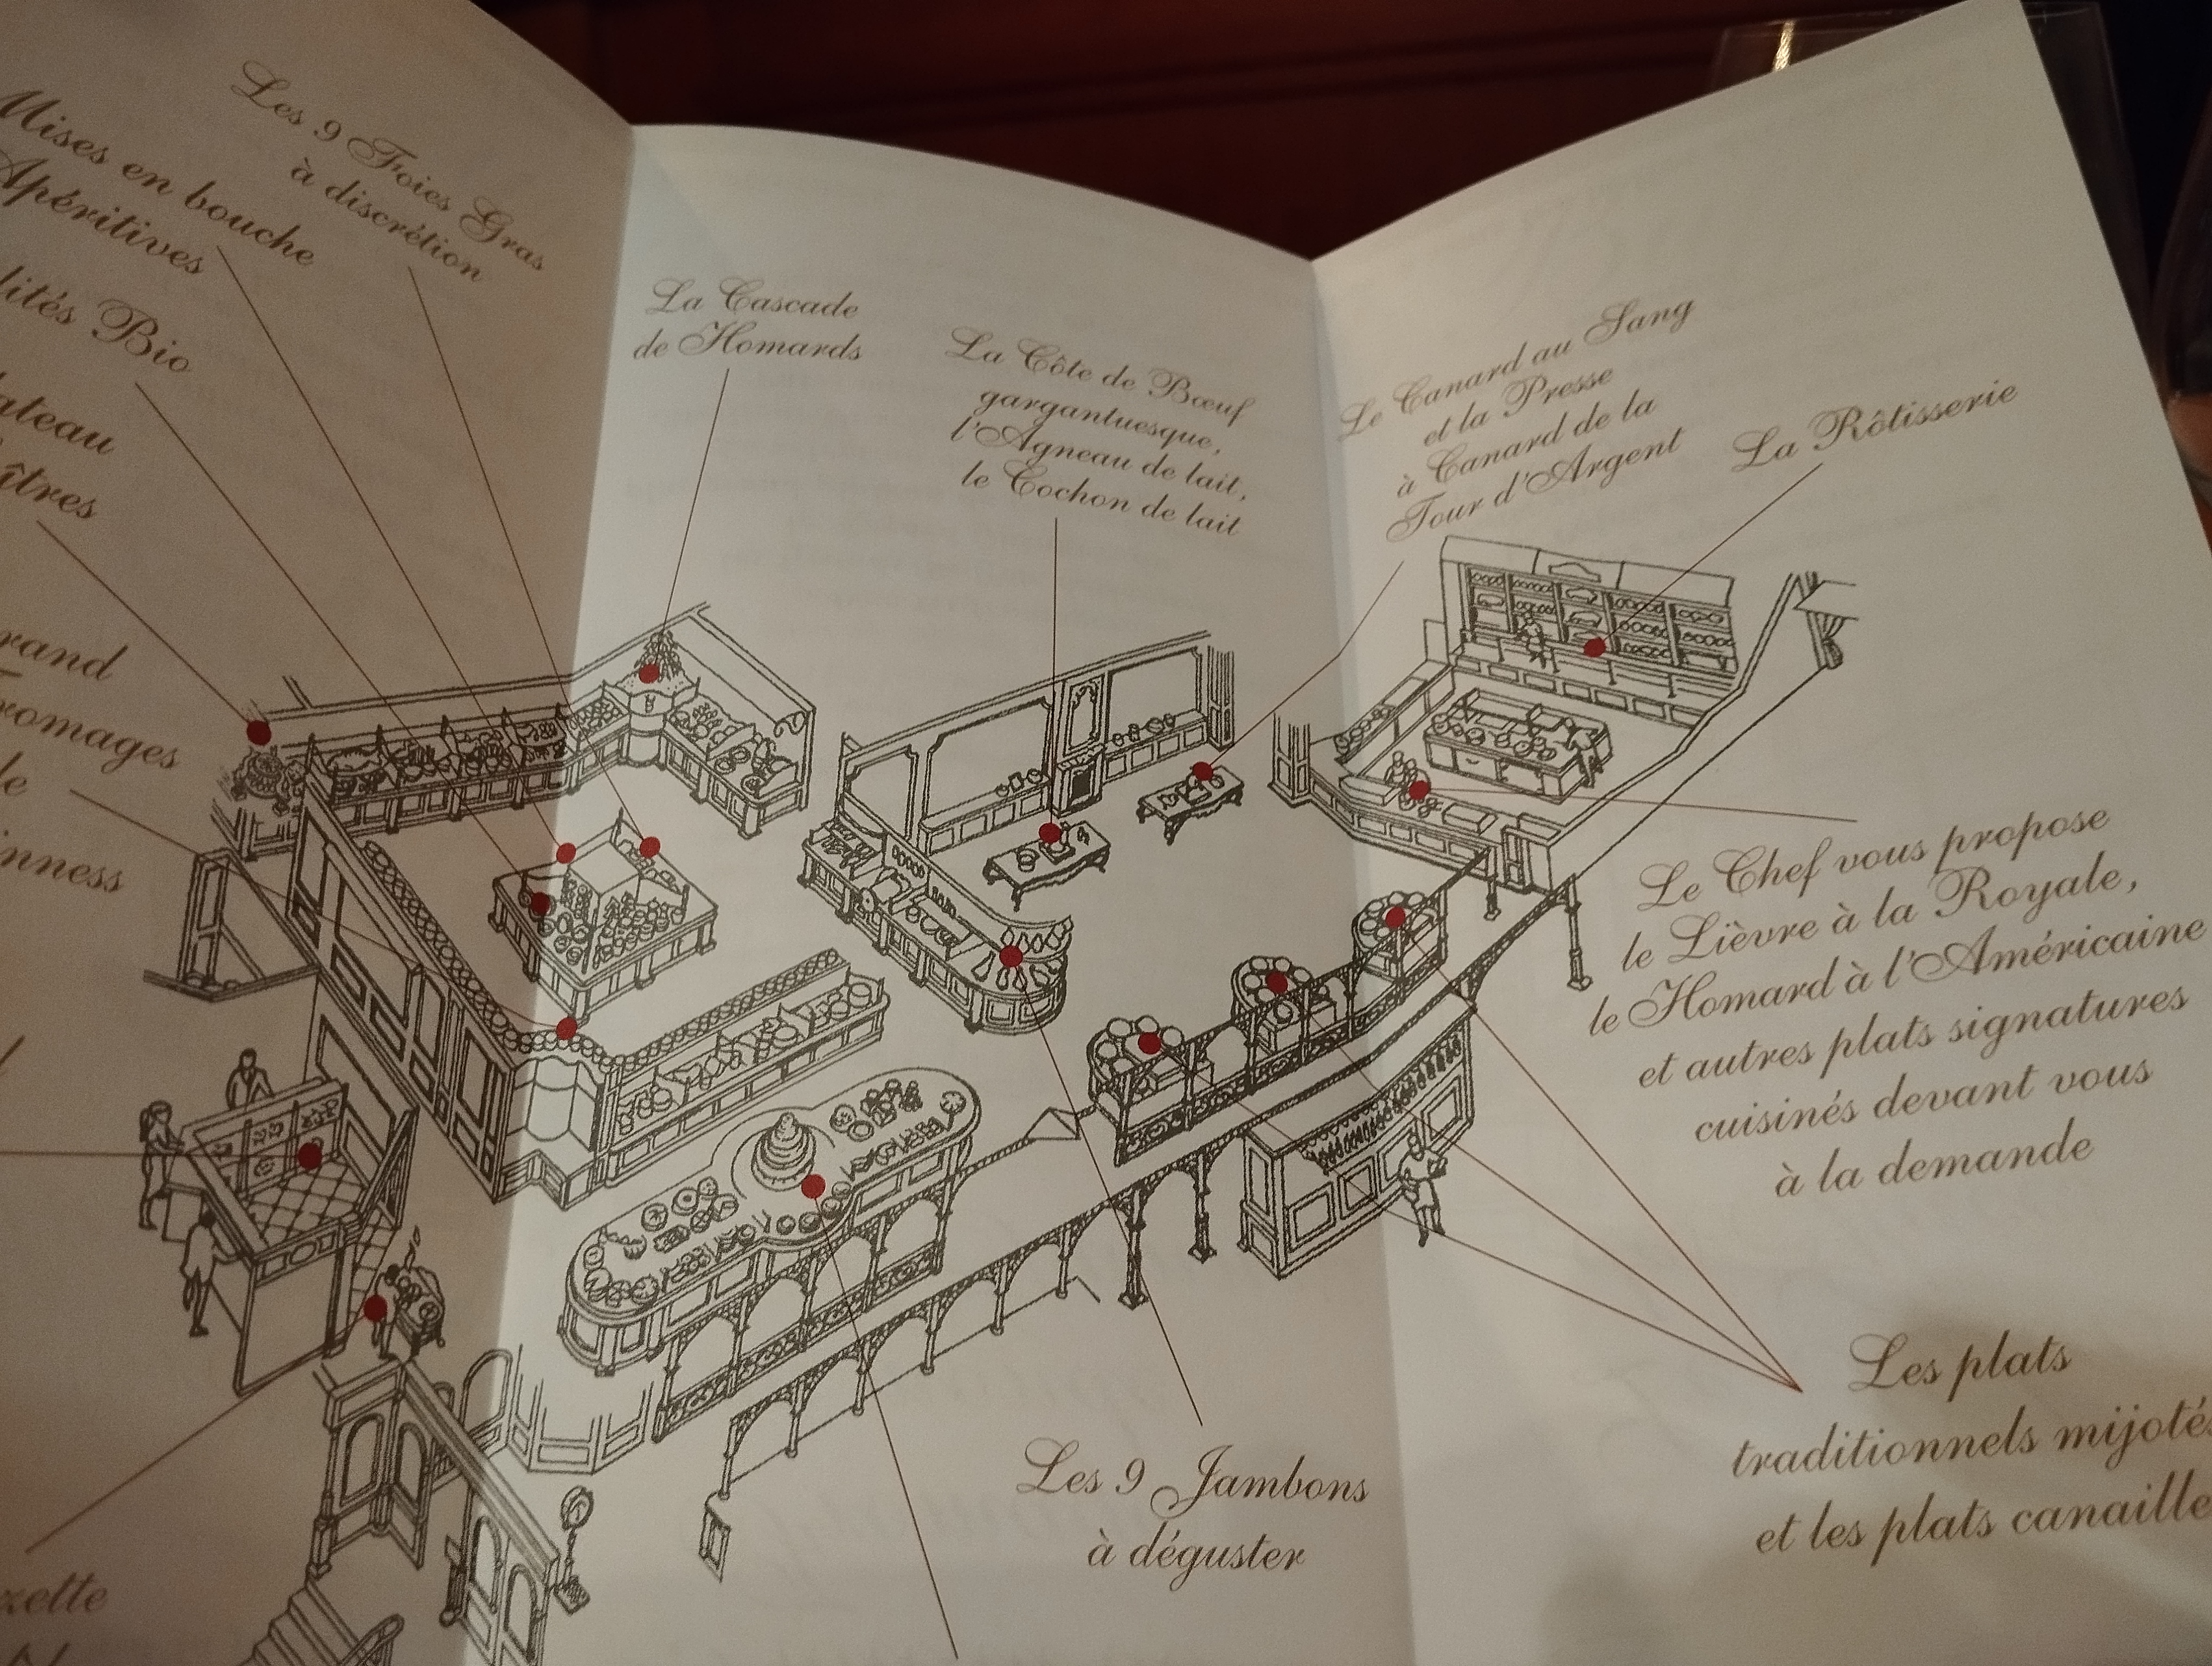 Les 9 Foies Gras
à discrétion
Mises en bouche
Apéritives
Bio
La Cascade
de Homards
La Côte de Bœuf
gargantuesque,
l'Agneau de lait,
le Cochon de lait
Le Canard au Sang
et la Presse
à Canard de la
Tour d'Argent
La Rôtisserie
Le Chef vous propose
le Lièvre à la Royale,
le Homard à l'Américaine
et autres plats signatures
cuisinés devant vous
à la demande
Les plats
traditionnels mijotés
et les plats canaille
Les 9 Jambons
à déguster